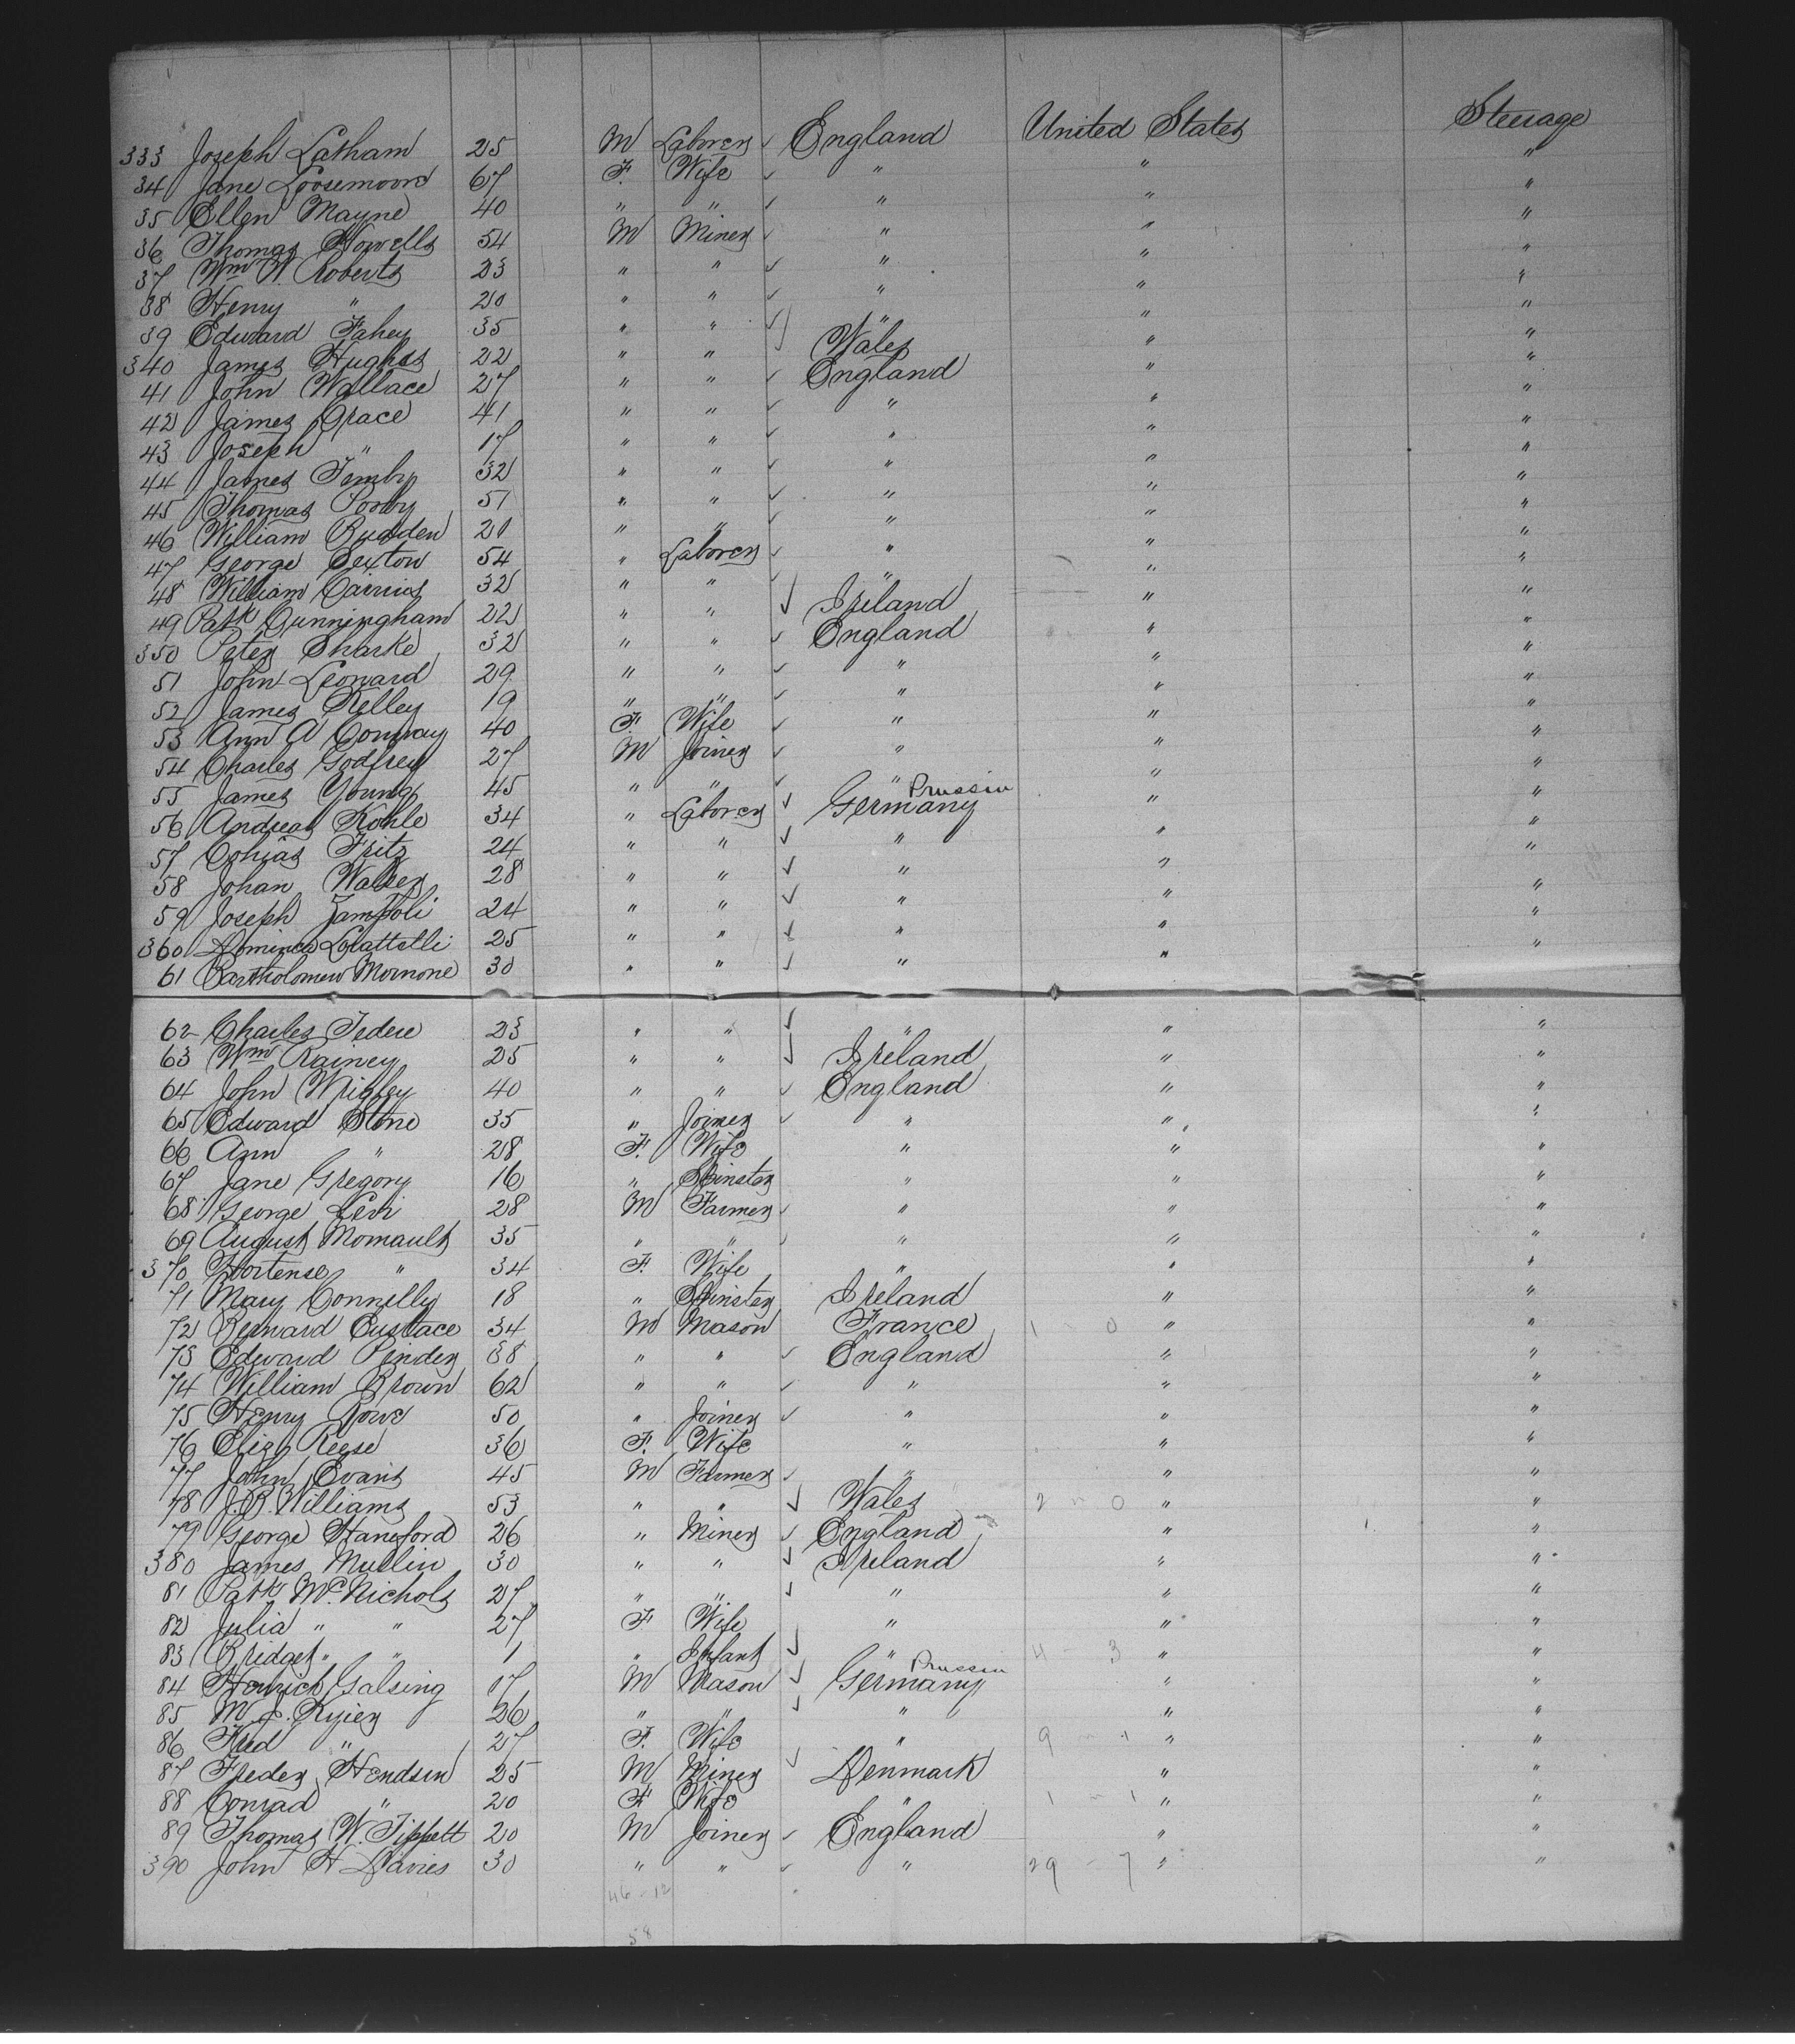 333 Joseph Latham 25 M Laborer England United States Steerage
34 Jane Loosemoore 67 F. Wife " " "
35 Ellen Mayne 40 " " " " "
36 Thomas Howells 54 M Miner " " "
37 Wm W. Roberts 23 " " " " "
38 Henry " 20 " " " " "
39 Edward Fahey 35 " " " " "
340 James Hughes 22 " " Wales " "
41 John Wallace 27 " " England " "
42 James Grace 41 " " " " "
43 Joseph " 17 " " " " "
44 James Temby 32 " " " " "
45 Thomas 51 " " " " "
46 William Rudden 21 " " " " "
47 George Sexton 54 " Laborer " " "
48 William 32 " " " " "
49 Patk Cunningham 22 " " Ireland " "
350 Peter Sharke 32 " " England " "
51 John Leonard 29 " " " " "
52 James Kelley 19 " " " " "
53 Ann A Conway 40 F. Wife " " "
54 Charles Godfrey 27 M Joiner " " "
55 James Young 45 " " " " "
56 Andreas Kohle 34 " Laborer Germany Prussia " "
57 Fritz 24 " " " " "
58 Johan Walser 28 " " " " "
59 Joseph Zampoli 24 " " " " "
360 Dominca Locattelli 25 " " " " "
61 Bartholomew Mornone 30 " " " " "
62 Charles Tedere 23 " " " " "
63 Wm Rainey 25 " " Ireland " "
64 John Wrigley 40 " " England " "
65 Edward Stone 35 " Joiner " " "
66 Ann " 28 F. Wife " " "
67 Jane Gregory 16 " Spinster " " "
68 George Levi 28 M Farmer " " "
69 August Momault 35 " " " " "
370 Hortense " 34 F. Wife " " "
71 Mary Connelly 18 " Spinster Ireland " "
72 Bernard Eustace 34 M Mason France 1 - 0 " "
73 Edward Pinder 38 " " England " "
74 William Brown 62 " " " " "
75 Henry Rowe 50 " Joiner " " "
76 Eliza Reese 36 F. Wife " " "
77 John Evans 45 M Farmer " " "
78 J. B. Williams 53 " " Wales 2 - 0 " "
79 George Hansford 26 " Miner England " "
380 James Mullin 30 " " Ireland " "
81 Patk McNichols 27 " " " " "
82 Julia " " 27 F Wife " " "
83 Bridget " " 1 " Infant " 4 - 3 " "
84 Heinrich Galsing 17 M Mason Germany Prussia " "
85 M. J. 26 " " " " "
86 Fred " 27 F. Wife " 9 - 1 " "
87 Freder Hendsen 25 M Miner Denmark " "
88 Conrad " 20 F Wife " 1 - 1 " "
89 Thomas W. Tippett 20 M Joiner England " "
390 John H Davies 30 " " " 29 - 7 " "
46 - 12
58